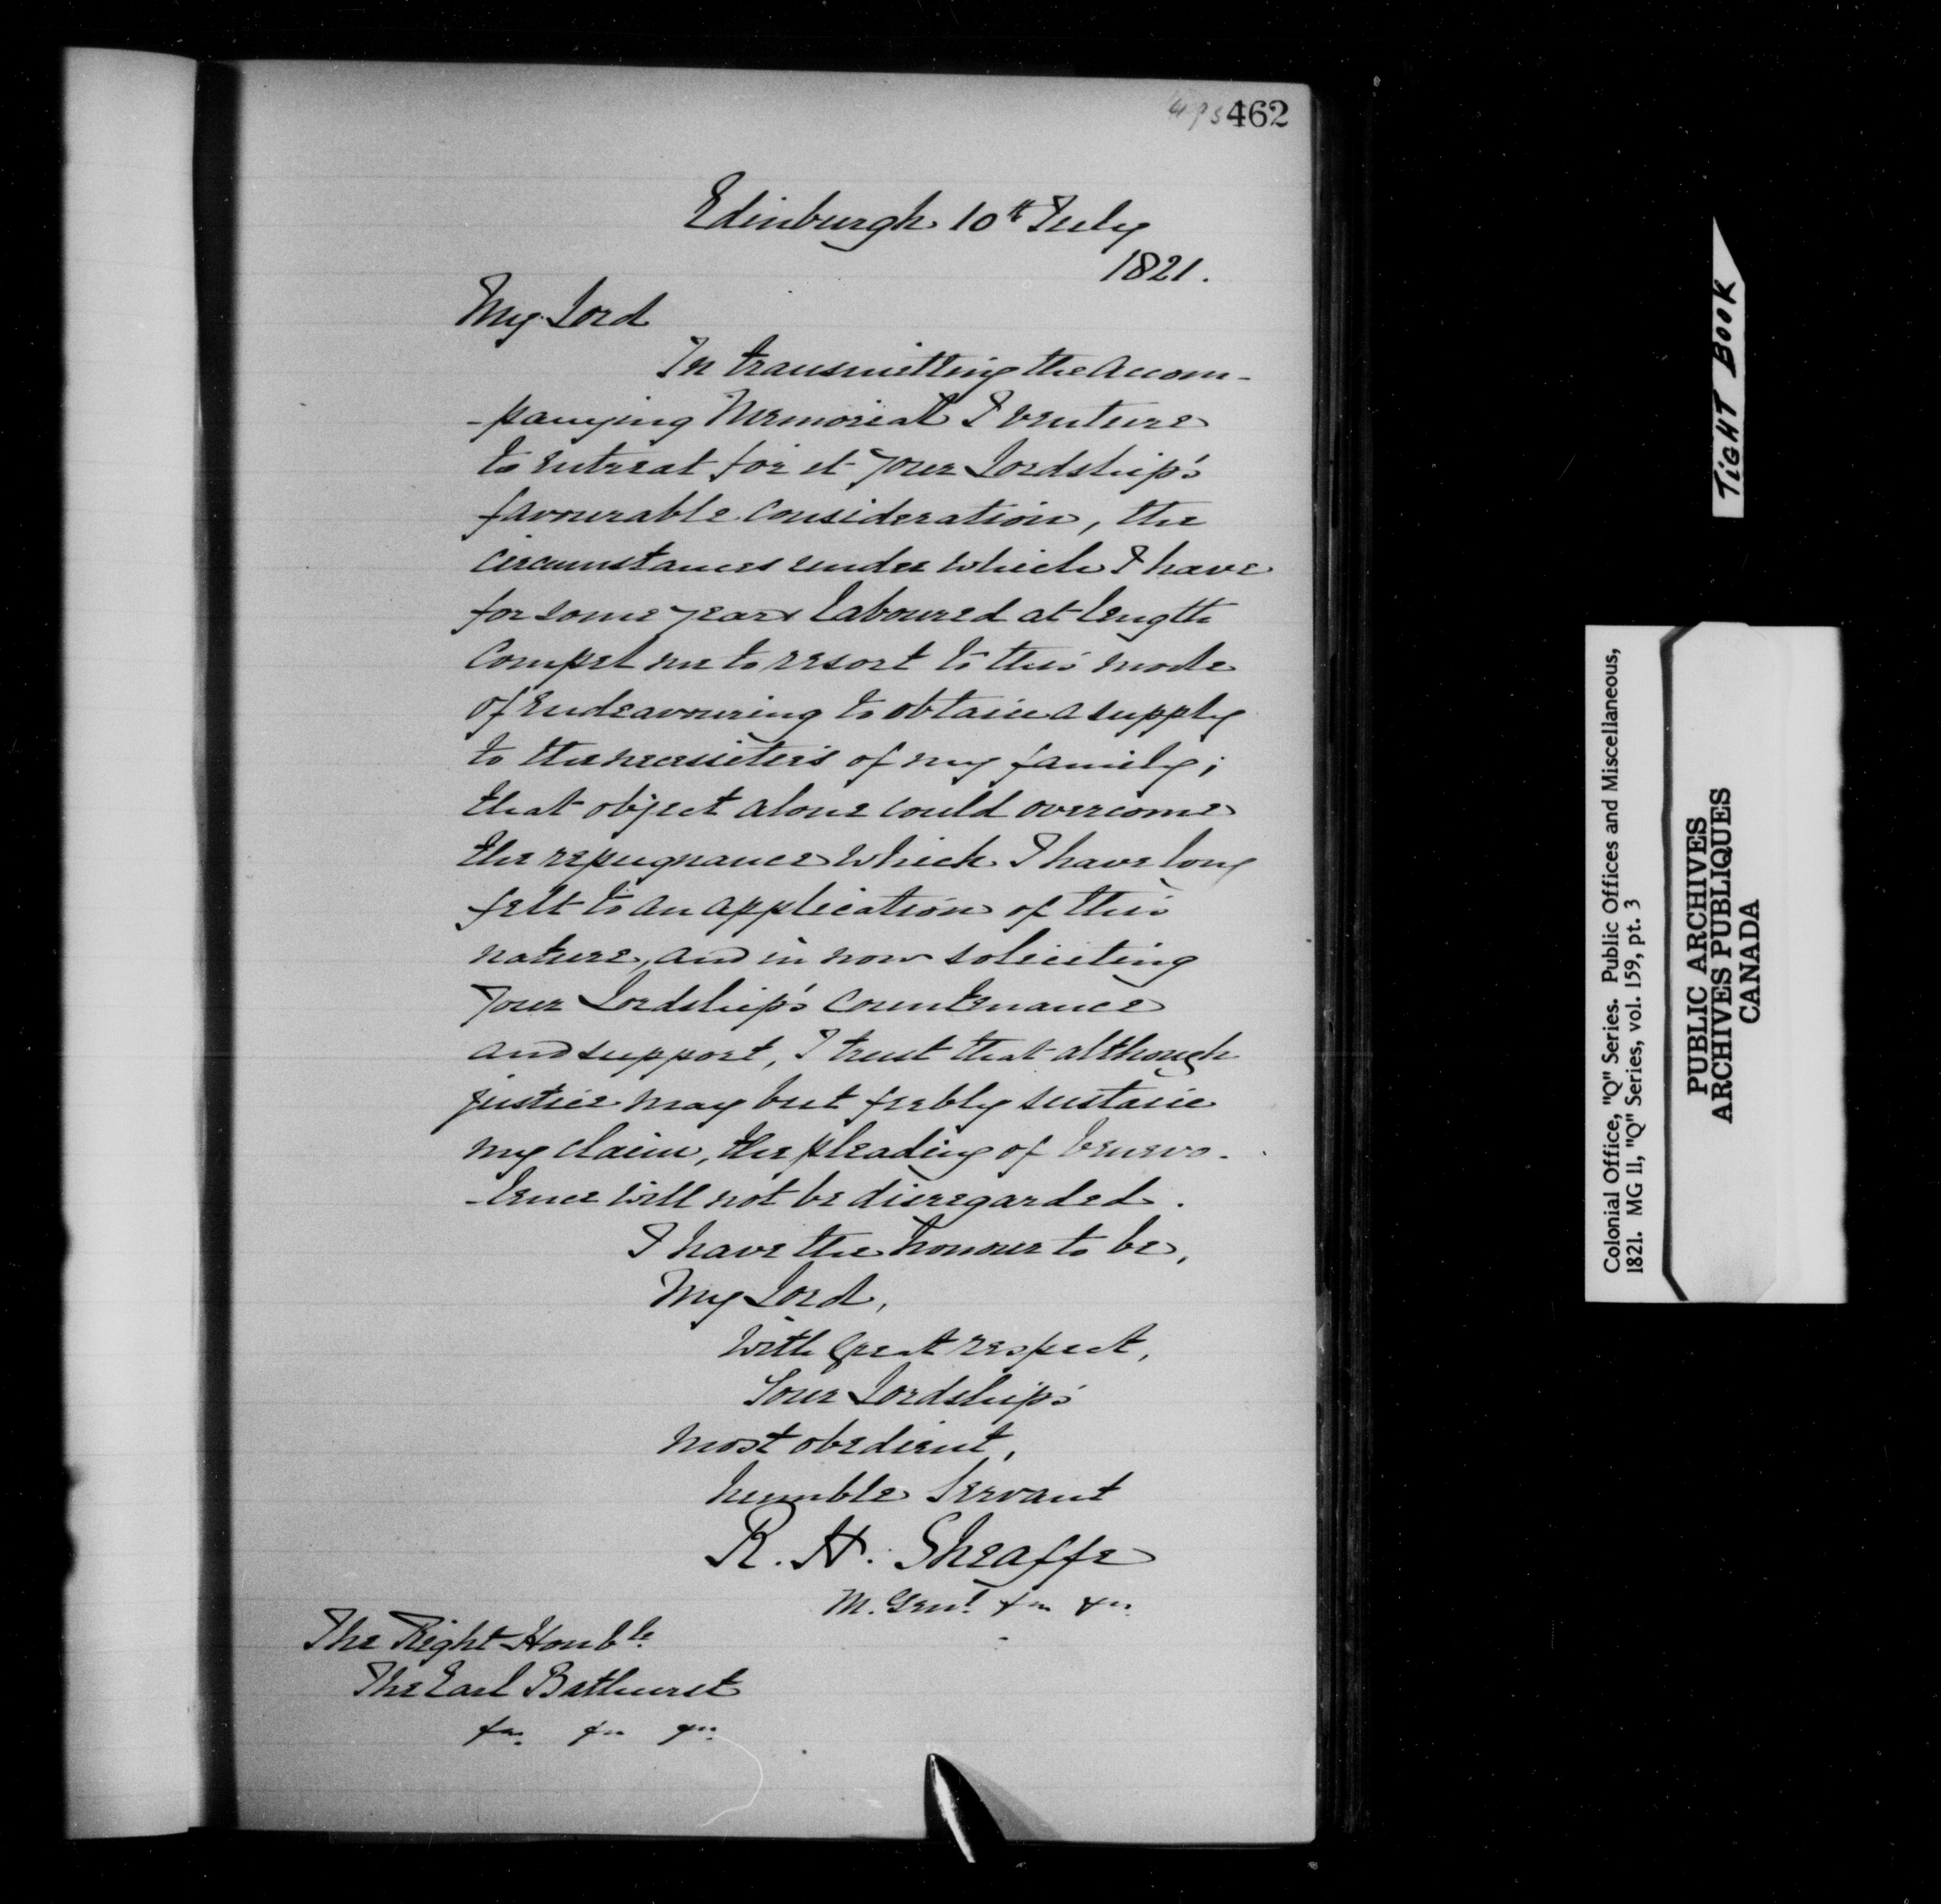 462
Edinburgh 10th July
1821.
My Lord
In transmitting the accom-
-panying Memorial I venture
to entreat for it your Lordship's
favourable consideration, the
circumstances under which I have
for some years laboured at length
compel me to resort to this mode
of endeavouring to obtain a supply
to the necessities of my family;
that object alone could overcome
the repugnance which I have long
felt to an application of this
nature, and in now soliciting
your Lordship's countenance
and support, I trust that although
justice may but feebly sustain
my claim, the pleading of benevo-
-lence will not be disregarded.
I have the honour to be,
My Lord,
With great respect,
Your Lordship's
most obedient,
humble Servant
R. H. Sheaffe
M. Genl. &c &c.
The Right Honble.
The Earl Bathurst
&c. &c &c.
TiGHT BOOK
Colonial Office, "Q" Series. Public Offices and Miscellaneous,
1821. MG 11, "Q" Series, vol. 159, pt. 3
PUBLIC ARCHIVES
ARCHIVES PUBLIQUES
CANADA